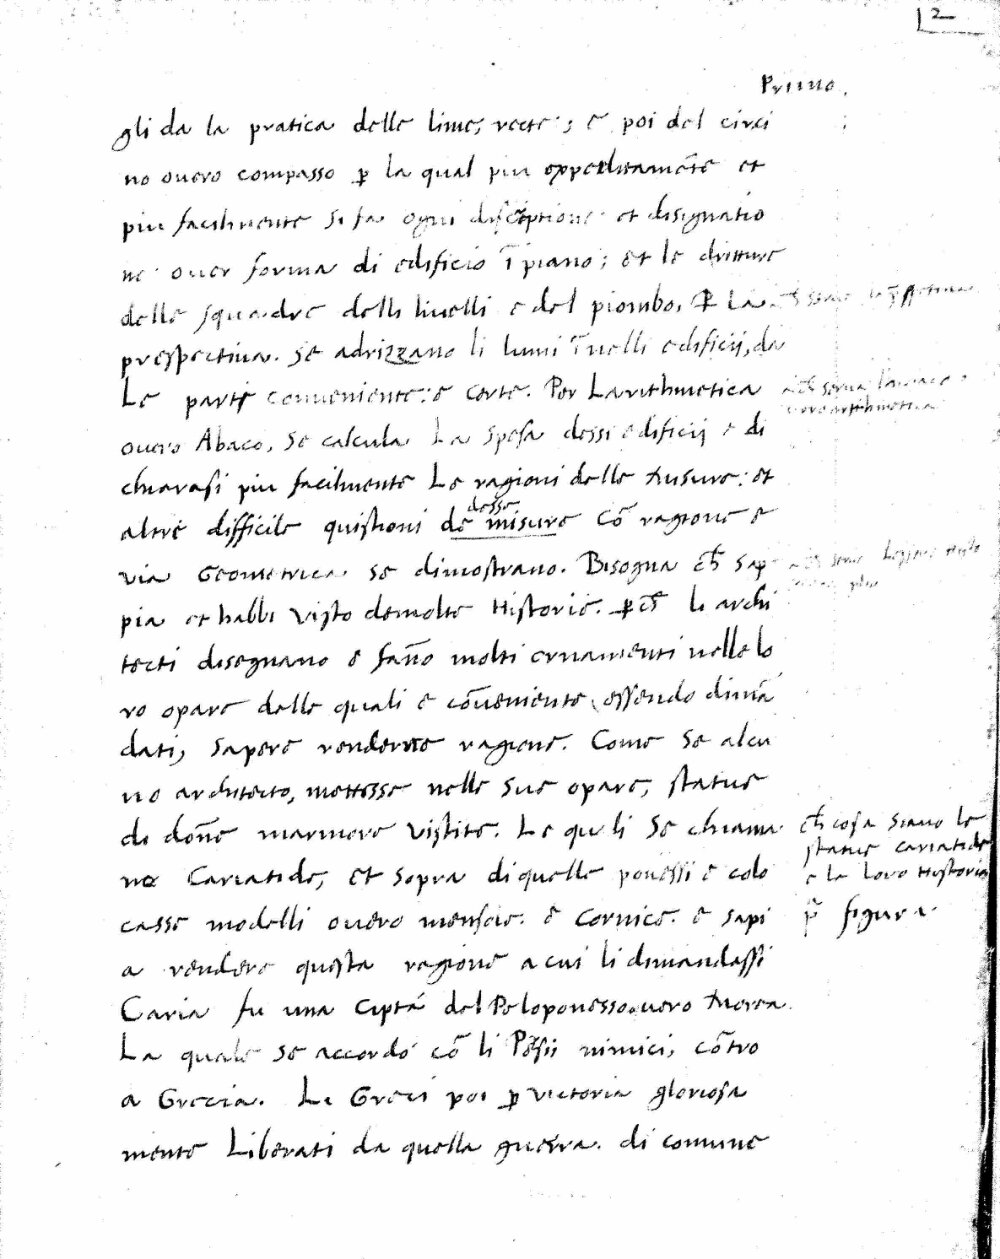 2
Primo.
gli da la pratica delle linie, recte; e poi del circi
no overo compasso p̱ la qual piu expeditamēte et
piu facilmente si fa ogni discriptione et disignatio
ne over forma di edificio ī piano; et le dritture
delle squadre delli livelli e del piombo. P̱ La
prespectiva. se adrizzano li lumi ī nelli edificij, da
Le parte conveniente: e certe. Per Larithmetica
overo Abaco, se calcula La spesa dessi edificij e di
chiarasi piu facilmente Le ragioni delle misure: et
desse
altre difficile quistioni de misure cō ragione e
via Geometrica se dimostrano. Bisogna ch̄ sap
pia et habbi visto demolte Historie. p̱ch̄ li archi
tecti disegnano e fāno molti ornamenti nelle lo
ro opare delle quali e cōveniente, essendo dimā
dati, sapere renderne ragione. Come se alcu
no architecto, mettesse nelle sue opare, statue
di dōne marmore vistite. Le quali se chiama
no Cariatide, et sopra di quelle ponessi e colo
casse modelli overo mensole. e cornice. e sapi
a rendere questa ragione a cui li dimandassi
Caria fu una ciptà del Peloponesso overo Morea.
La quale se accordò cō li Persii nimici, cōtro
a Grecia. Li Greci poi p̱ victoria gloriosa
mente Liberati da quella guerra. di comune
ch̄ serva l'abaco
overo arithmetica
ch̄ cosa siano le
statue cariatide
e la loro Historia
p̄ figura.